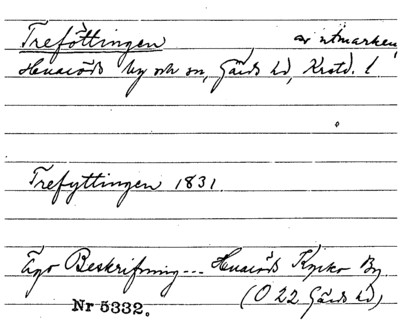 Treföttingen av utmarken,
Huaröds by och sn, Gärds hd, Krstd. l
Trefyttingen 1831
Ägo Beskrifning... Huaröds Kyrko By
Nr 5332. (O 22 Gärds hd)